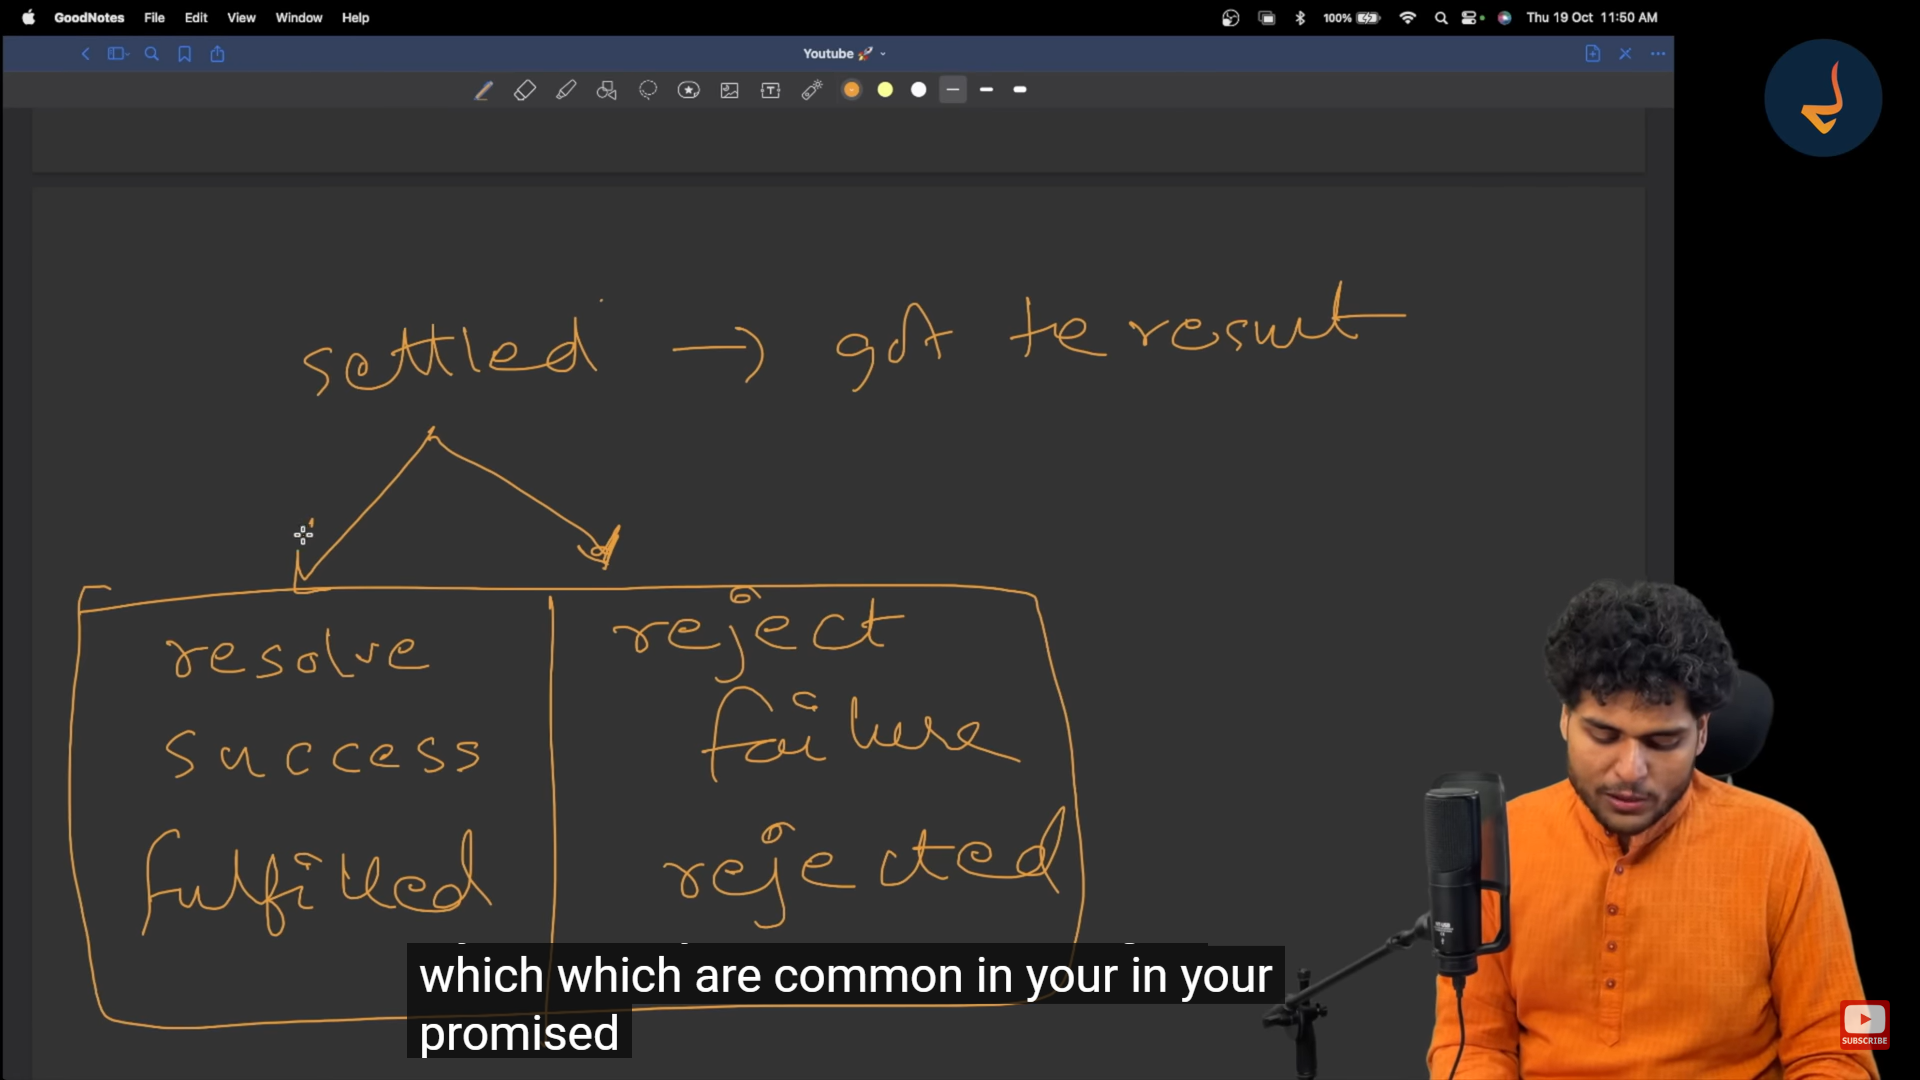 GoodNotes File Edit View Window Help 100% Thu 19 Oct 11:50 AM
Youtube 🚀
settled → got te result
resolve reject
success failure
fulfilled rejected
which which are common in your in your
promised
SUBSCRIBE